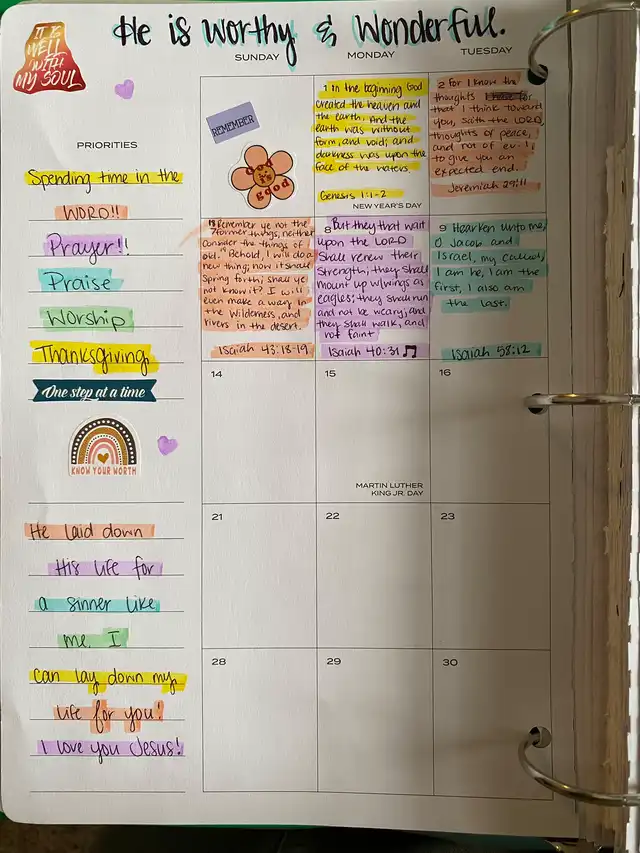 IT IS
WELL
WITH
MY SOUL
He is worthy & Wonderful.
SUNDAY
MONDAY
TUESDAY
PRIORITIES
Spending time in the
WORD!!
Prayer!!
Praise
Worship
Thanksgiving
One step at a time
KNOW YOUR WORTH
He laid down
His life for
a sinner like
me. I
can lay down my
life for you!
I love you Jesus!
REMEMBER
God
is
good
1 In the beginning God
created the heaven and
the earth. And the
earth was without
form, and void; and
darkness was upon the
face of the waters
Genesis 1:1-2
NEW YEAR'S DAY
2 For I know the
thoughts
that I think toward
you, saith the LORD,
thoughts of peace,
and not of evil,
to give you an
expected end.
Jeremiah 29:11
18 Remember ye not the
7 former things, neither
consider the things of
old. 19 Behold, I will do a
new thing; now it shall
spring forth; shall ye
not know it? I will
even make a way in
the wilderness, and
rivers in the desert.
Isaiah 43:18-19
8 But they that wait
upon the LORD
shall renew their
strength; they shall
mount up w/wings as
eagles; they shall run
and not be weary; and
they shall walk, and
not faint
Isaiah 40:31
9 Hearken unto me,
O Jacob and
Israel, my called;
I am he, I am the
first, I also am
the last.
Isaiah 58:12
14
15
MARTIN LUTHER
KING JR. DAY
16
21
22
23
28
29
30